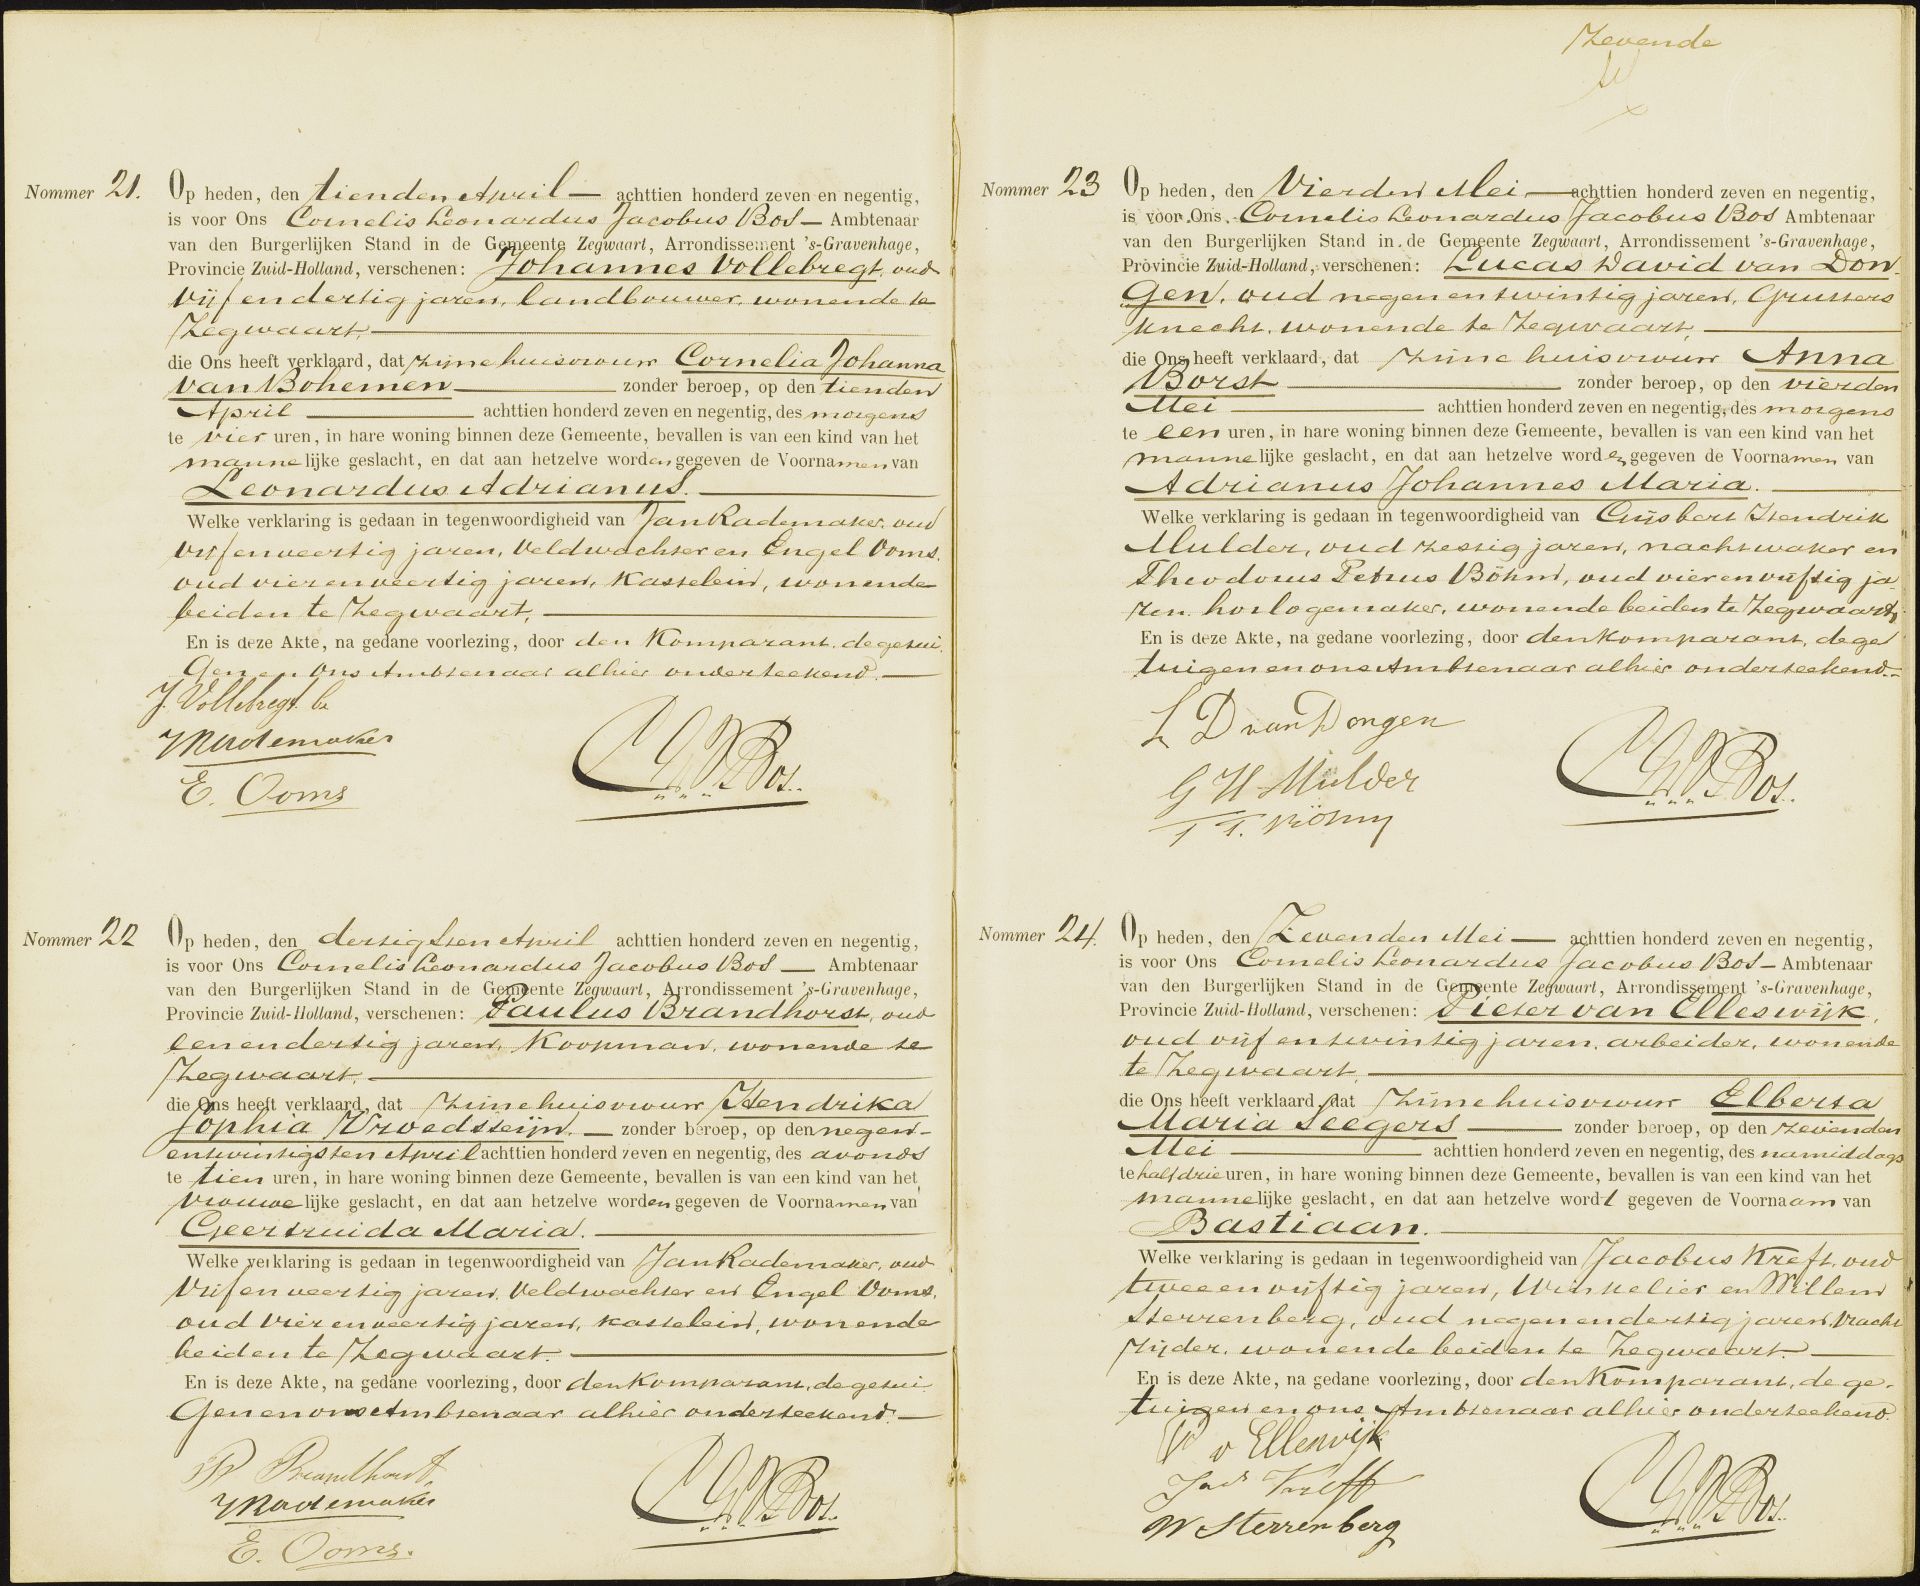 Nommer 21. Op heden, den tienden April — achttien honderd zeven en negentig,
is voor Ons Cornelis Leonardus Jacobus Bos — Ambtenaar
van den Burgerlijken Stand in de Gemeente Zegwaart, Arrondissement 's-Gravenhage,
Provincie Zuid-Holland, verschenen: Johannes Vollebregt, oud
vijf en dertig jaren, landbouwer, wonende te
Zegwaart,
die Ons heeft verklaard, dat zijne huisvrouw Cornelia Johanna
van Bohemen — zonder beroep, op den tienden
April — achttien honderd zeven en negentig, des morgens
te vier uren, in hare woning binnen deze Gemeente, bevallen is van een kind van het
mannelijke geslacht, en dat aan hetzelve worden gegeven de Voornamen van
Leonardus Adrianus. —
Welke verklaring is gedaan in tegenwoordigheid van Jan Rademaker, oud
vijf en veertig jaren, Veldwachter en Engel Ooms,
oud vier en veertig jaren, Kastelein, wonende
beiden te Zegwaart, —
En is deze Akte, na gedane voorlezing, door den Komparant, de getui
gen en ons Ambtenaar alhier onderteekend. —
J. Vollebregt
JRademaker
E. Ooms
CLJBos.
Nommer 22 Op heden, den dertigsten April achttien honderd zeven en negentig,
is voor Ons Cornelis Leonardus Jacobus Bos — Ambtenaar
van den Burgerlijken Stand in de Gemeente Zegwaart, Arrondissement 's-Gravenhage,
Provincie Zuid-Holland, verschenen: Paulus Brandhorst, oud
een en dertig jaren, Koopman, wonende te
Zegwaart, —
die Ons heeft verklaard, dat zijne huisvrouw Hendrika
Sophia Vroedsteijn. — zonder beroep, op den negen-
entwintigsten April achttien honderd zeven en negentig, des avonds
te tien uren, in hare woning binnen deze Gemeente, bevallen is van een kind van het
vrouwelijke geslacht, en dat aan hetzelve worden gegeven de Voornamen van
Geertruida Maria. —
Welke verklaring is gedaan in tegenwoordigheid van Jan Rademaker, oud
vijf en veertig jaren, Veldwachter en Engel Ooms,
oud vier en veertig jaren, kastelein, wonende
beiden te Zegwaart. —
En is deze Akte, na gedane voorlezing, door den Komparant, de getui
gen en ons Ambtenaar alhier onderteekend. —
P Brandhorst,
JRademaker
E. Ooms.
CLJBos.
Zevende
Nommer 23 Op heden, den Vierden Mei — achttien honderd zeven en negentig,
is voor Ons Cornelis Leonardus Jacobus Bos Ambtenaar
van den Burgerlijken Stand in de Gemeente Zegwaart, Arrondissement 's-Gravenhage,
Provincie Zuid-Holland, verschenen: Lucas David van Don
gen, oud negen en twintig jaren, Grutters
knecht, wonende te Zegwaart, —
die Ons heeft verklaard, dat zijne huisvrouw Anna
Borst — zonder beroep, op den vierden
Mei — achttien honderd zeven en negentig, des morgens
te een uren, in hare woning binnen deze Gemeente, bevallen is van een kind van het
mannelijke geslacht, en dat aan hetzelve worden gegeven de Voornamen van
Adrianus Johannes Maria. —
Welke verklaring is gedaan in tegenwoordigheid van Gijsbert Hendrik
Mulder, oud zestig jaren, nachtwaker en
Theodorus Petrus Böhm, oud vier en vijftig ja
ren, horlogemaker, wonende beiden te Zegwaart,
En is deze Akte, na gedane voorlezing, door den Komparant, de ge
tuigen en ons Ambtenaar alhier onderteekend. —
L D van Dongen
G H Mulder
T P. Böhm
CLJBos.
Nommer 24. Op heden, den Zevenden Mei — achttien honderd zeven en negentig,
is voor Ons Cornelis Leonardus Jacobus Bos — Ambtenaar
van den Burgerlijken Stand in de Gemeente Zegwaart, Arrondissement 's-Gravenhage,
Provincie Zuid-Holland, verschenen: Pieter van Elleswijk,
oud vijf en twintig jaren, arbeider, wonende
te Zegwaart, —
die Ons heeft verklaard, dat zijne huisvrouw Elberta
Maria Seegers — zonder beroep, op den zevenden
Mei — achttien honderd zeven en negentig, des namiddags
te half drie uren, in hare woning binnen deze Gemeente, bevallen is van een kind van het
mannelijke geslacht, en dat aan hetzelve wordt gegeven de Voornaam van
Bastiaan. —
Welke verklaring is gedaan in tegenwoordigheid van Jacobus Kreft, oud
twee en vijftig jaren, Winkelier en Willem
Sterrenberg, oud negen en dertig jaren, Vracht
rijder, wonende beiden te Zegwaart. —
En is deze Akte, na gedane voorlezing, door den Komparant, de ge-
tuigen en ons Ambtenaar alhier onderteekend.
P v Elleswijk
Jac Kreft
W Sterrenberg
CLJBos.